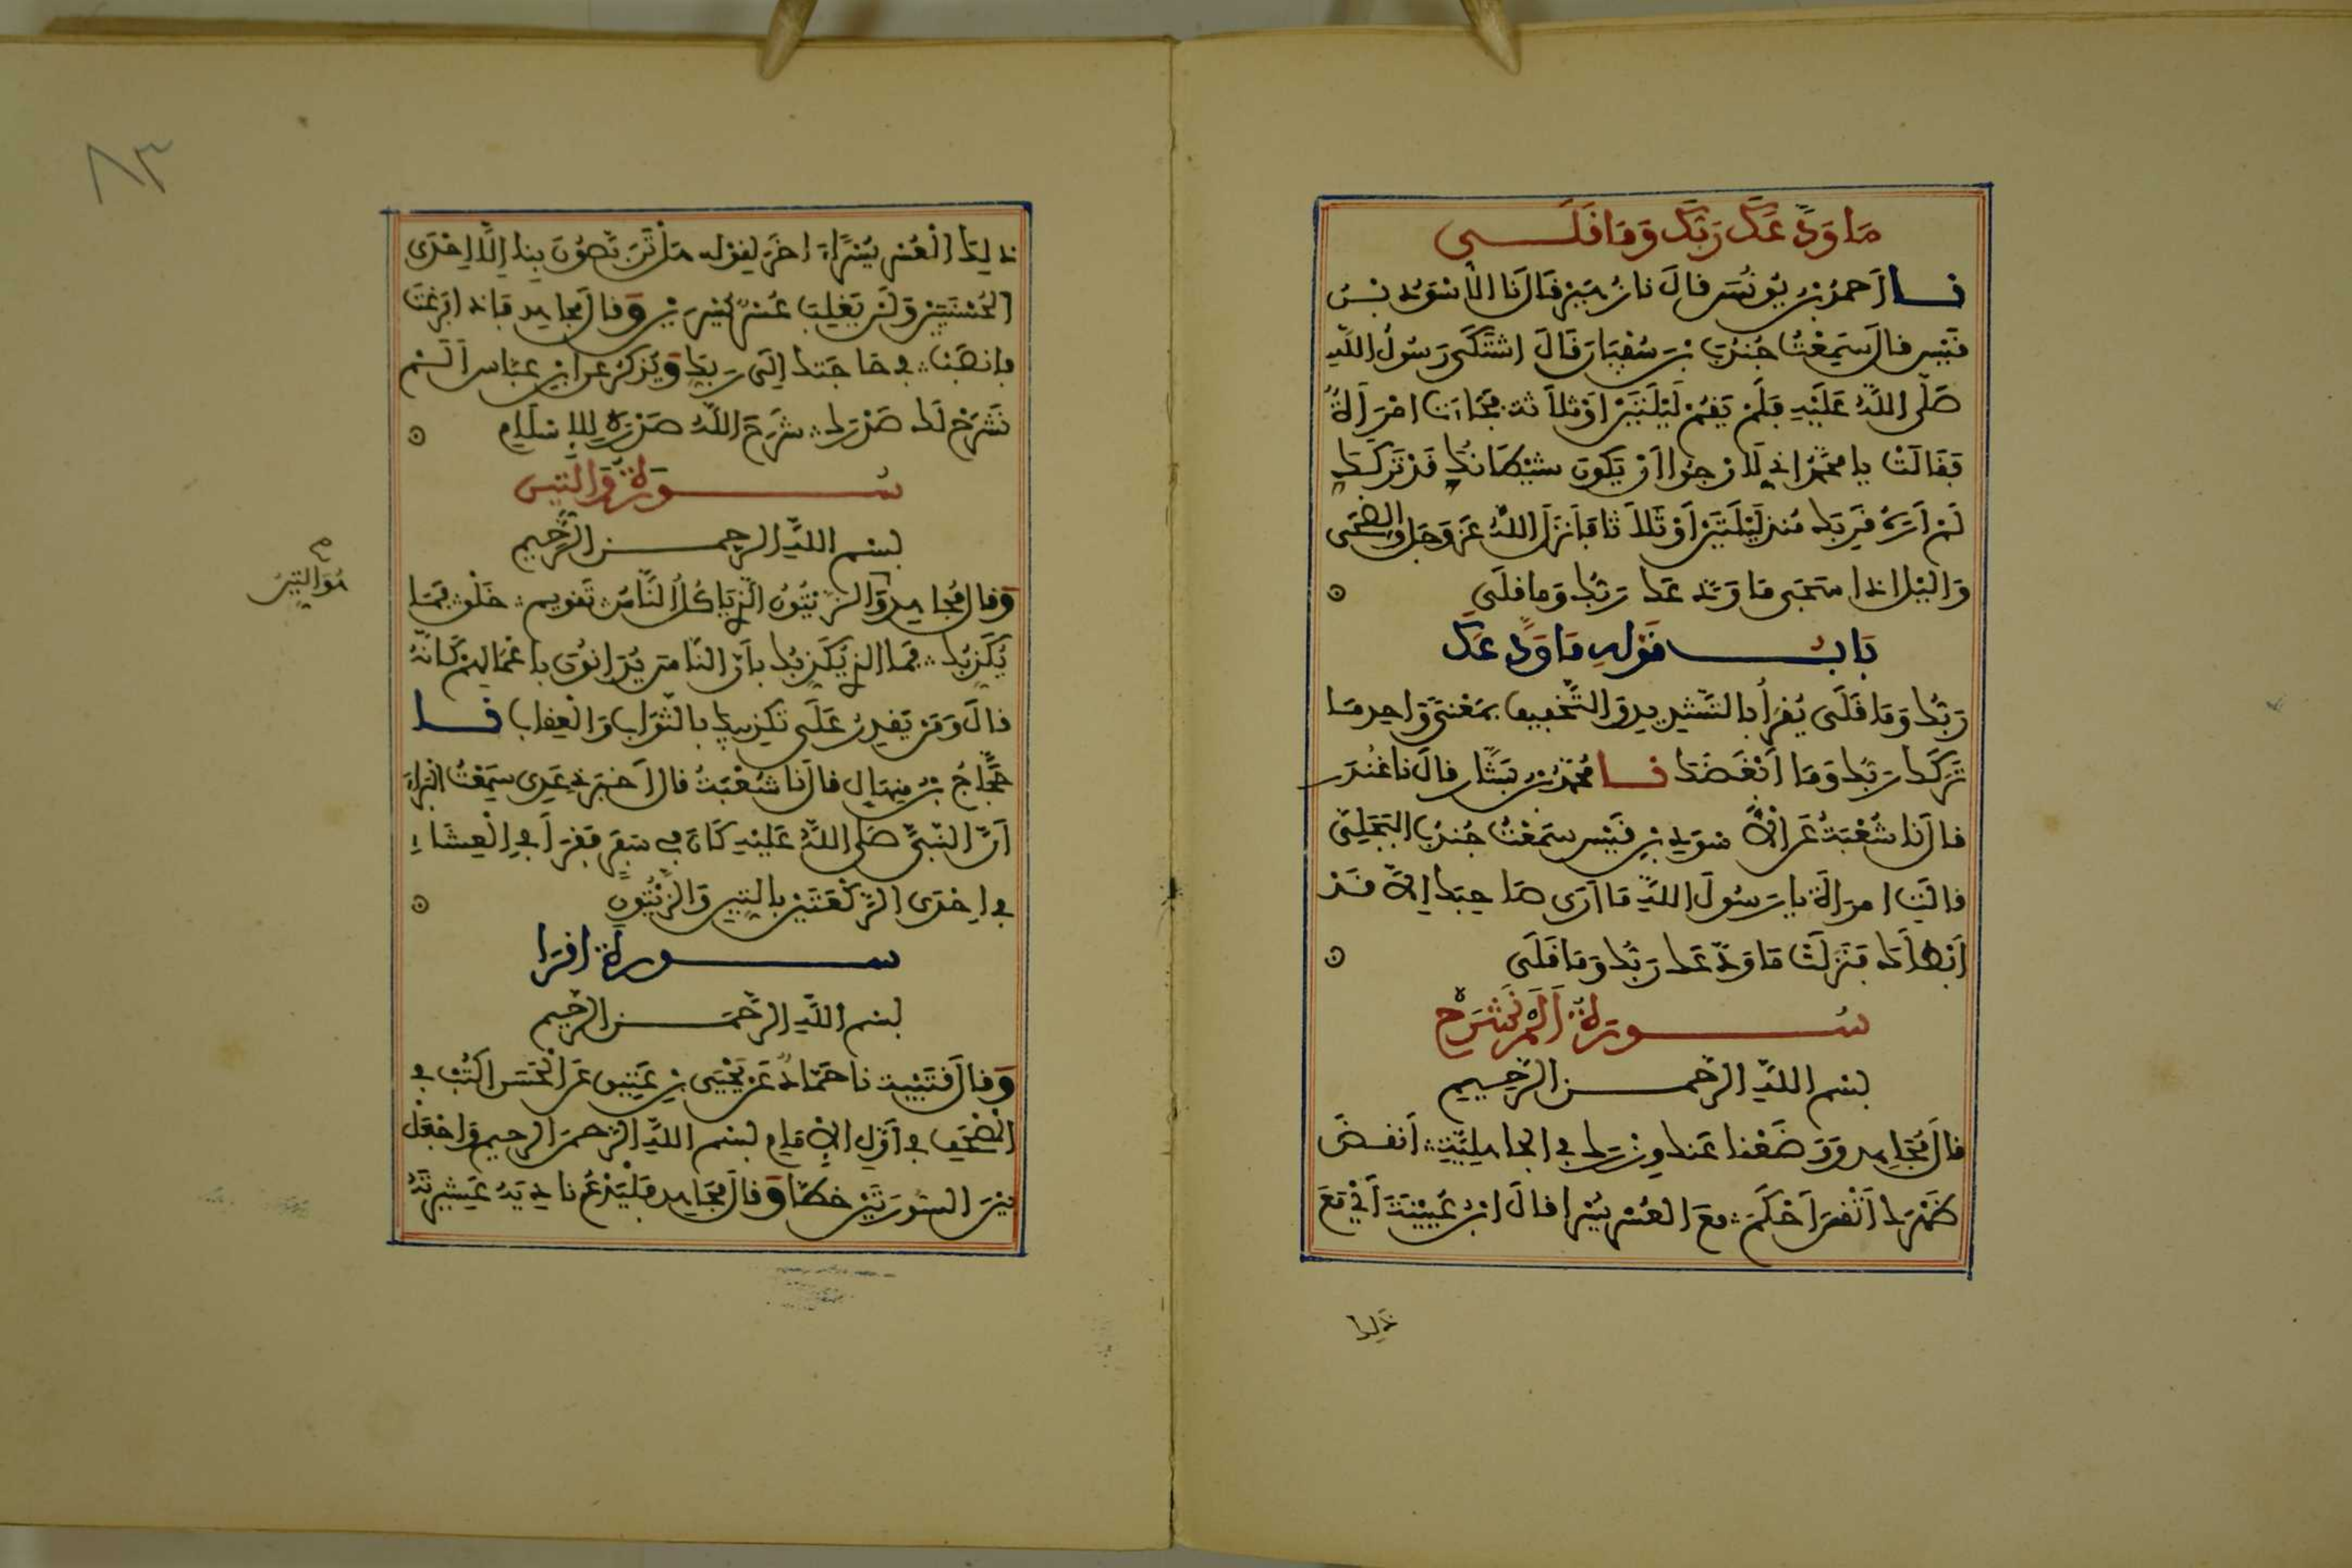 مَا وَدَّعَكَ رَبُّكَ وَمَا قَلَى
نا أَحمدُ بنُ يُونُسَ قالَ نا زُهَيْرٌ قَالَ نَا الْأَسْوَدُ بْنُ
قَيْسٍ قالَ سَمِعْتُ جُنْدُبَ بْنَ سُفْيَانَ قَالَ اشْتَكَى رَسُولُ اللَّهِ
صَلَّى اللَّهُ عَلَيْهِ فَلَمْ يَقُمْ لَيْلَتَيْنِ أَوْ ثَلَاثَةً فَجَاءَتْ امْرَأَةٌ
فَقَالَتْ يا مُحَمَّدُ إِنِّي لَأَرْجُوا أَنْ يَكُونَ شَيْطَانُكَ قَدْ تَرَكَكَ
لَمْ أَرَهُ قَرِبَكَ مُنْذُ لَيْلَتَيْنِ أَوْ ثَلَاثًا فَأَنْزَلَ اللَّهُ عَزَّ وَجَلَّ وَالضُّحَى
وَاليْلِ إِذَا سَجَى مَا وَدَّعَكَ رَبُّكَ وَمَا قَلَى
بَابُ قَوْلِهِ مَا وَدَّعَكَ
رَبُّكَ وَمَا قَلَى يُقْرَأُ بالتَّشْدِيدِ وَالتَّخْفِيفِ بِمَعْنًى وَاحِدٍ مَا
تَرَكَكَ رَبُّكَ وَمَا أَبْغَضَكَ نا مُحَمَّدُ بْنُ بَشَّارٍ قالَ نا غُنْدَرٌ
قالَ نا شُعْبَةُ عَنِ الْأَسْوَدِ بْنِ قَيْسٍ سَمِعْتُ جُنْدُبَ الْبَجَلِيَّ
قالَتِ امْرَأَةٌ يا رَسُولَ اللَّهِ مَا أَرَى صَاحِبَكَ إِلَّا قَدْ
أَبْطَأَكَ فَنَزَلَتْ مَا وَدَّعَكَ رَبُّكَ وَمَا قَلَى
سُورَةُ أَلَمْ نَشْرَحْ
بسم اللَّهِ الرَّحْمنِ الرَّحِيمِ
قالَ مُجَاهِد وَوَضَعْنَا عَنكَ وِزْرَكَ فِي الجاهِلِيَّةِ أَنقَضَ
ظَهْرَكَ أَثْقَلَ مَعَ العُسْرِ يُسْرًا قالَ ابْنُ عُيَيْنَةَ أَيْ مَعَ
ذَلِكَ
ذلِكَ الْعُسْرِ يُسْرًا آخَرَ لِقَوْلِهِ هَلْ تَرَبَّصُونَ بِنَا إِلَّا إِحْدَى
الْحُسْنَيَيْنِ وَلَنْ يَغْلِبَ عُسْرٌ يُسْرَيْنِ وَقالَ مُجاهِد فَإِذَا فَرَغْتَ
فانصَبْ فِي حَاجَتِكَ إِلَى رَبِّكَ وَيُذْكَرُ عَنِ ابْنِ عَبَّاسٍ أَلَمْ
نَشْرَحْ لَكَ صَدْرَكَ شَرَحَ اللَّهُ صَدْرَهُ لِلْإِسْلَامِ
سُورَةُ وَالتِّينِ
بسم اللَّهِ الرَّحمنِ الرَّحِيمِ
وَقالَ مُجاهِد وَالزَّيْتُونُ الَّذِي يَأْكُلُ النَّاسُ تَقْوِيمٍ خَلْقٍ فَمَا
هُوَ التِّينُ
يُكَذِّبُكَ فَمَا الذي يُكَذِّبُكَ بأَنَّ النَّاسَ يُدَانُونَ بأَعْمَالِهِمْ كَأَنَّهُ
قالَ وَمَنْ يَقْدِرُ عَلَى تَكْذِيبِكَ بالثَّوَابِ وَالْعِقَابِ نا
حَجَّاجُ بْنُ مِنْهَالٍ قالَ نا شُعْبَةُ قالَ أَخْبَرَنِي عَدِي سَمِعْتُ الْبَرَاءَ
أَنَّ النَّبِيَّ صَلَّى اللَّهُ عَلَيْهِ كَانَ فِي سَفَرٍ فَقَرَأَ فِي الْعِشَاءِ
فِي إِحْدَى الرَّكْعَتَيْنِ بالتِّينِ وَالزَّيْتُونِ
سورة اقرا
بسم اللَّهِ الرَّحْمَنِ الرَّحِيمِ
وَقالَ قُتَيْبَة نا حَمَّادٌ عَنْ يَحْيَى بْنِ عَتِيقٍ عَنِ الْحَسَنِ اكْتُبْ فِي
الْمُصْحَفِ فِي أَوَّلِ الْإِمَامِ بسم اللَّهِ الرَّحمنِ الرحيم وَاجْعَلْ
بَيْنَ السُّورَتَيْنِ خَطًّا وَقالَ مُجَاهِد فَلْيَدْعُ نادِيَهُ عَشِيرَتَهُ
٨٣